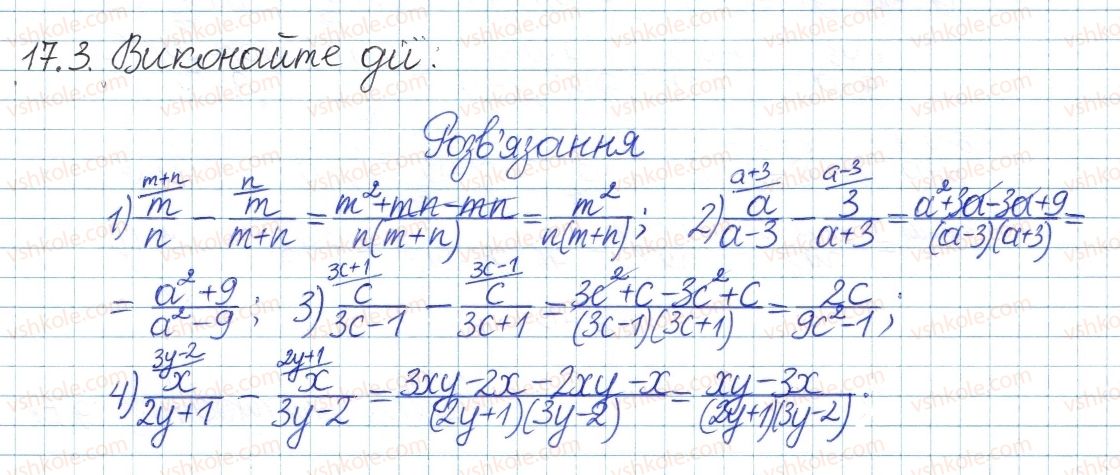 17.3. Виконайте дії:
Розв'язання
1) m/n (m+n) − m/(m+n) (n) = (m²+mn−mn)/(n(m+n)) = m²/(n(m+n)); 2) a/(a−3) (a+3) − 3/(a+3) (a−3) = (a²+3a−3a+9)/((a−3)(a+3)) =
= (a²+9)/(a²−9); 3) c/(3c−1) (3c+1) − c/(3c+1) (3c−1) = (3c²+c−3c²+c)/((3c−1)(3c+1)) = 2c/(9c²−1);
4) x/(2y+1) (3y−2) − x/(3y−2) (2y+1) = (3xy−2x−2xy−x)/((2y+1)(3y−2)) = (xy−3x)/((2y+1)(3y−2)).
vshkole.com